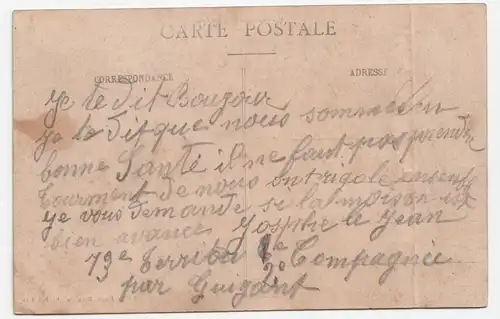 CARTE POSTALE
CORRESPONDANCE
ADRESSE
Je te dit Bouzour
je te dit que nous sommes en
bonne Santé il ne faut pas prendre
tourment de nous on trigole
je vous demande se la moison est
bien avancé Josphe le Jean
73e Territo Compagnie
par Guigant